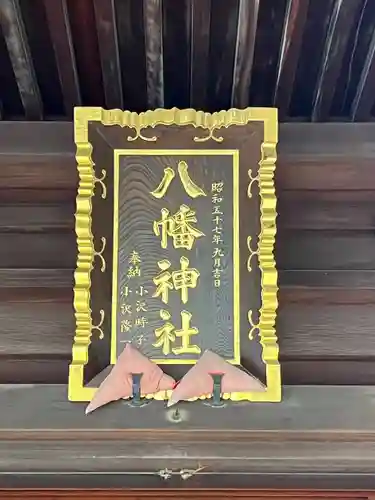 八幡神社
昭和五十七年九月吉日
奉納 小沢時子
小沢隆一